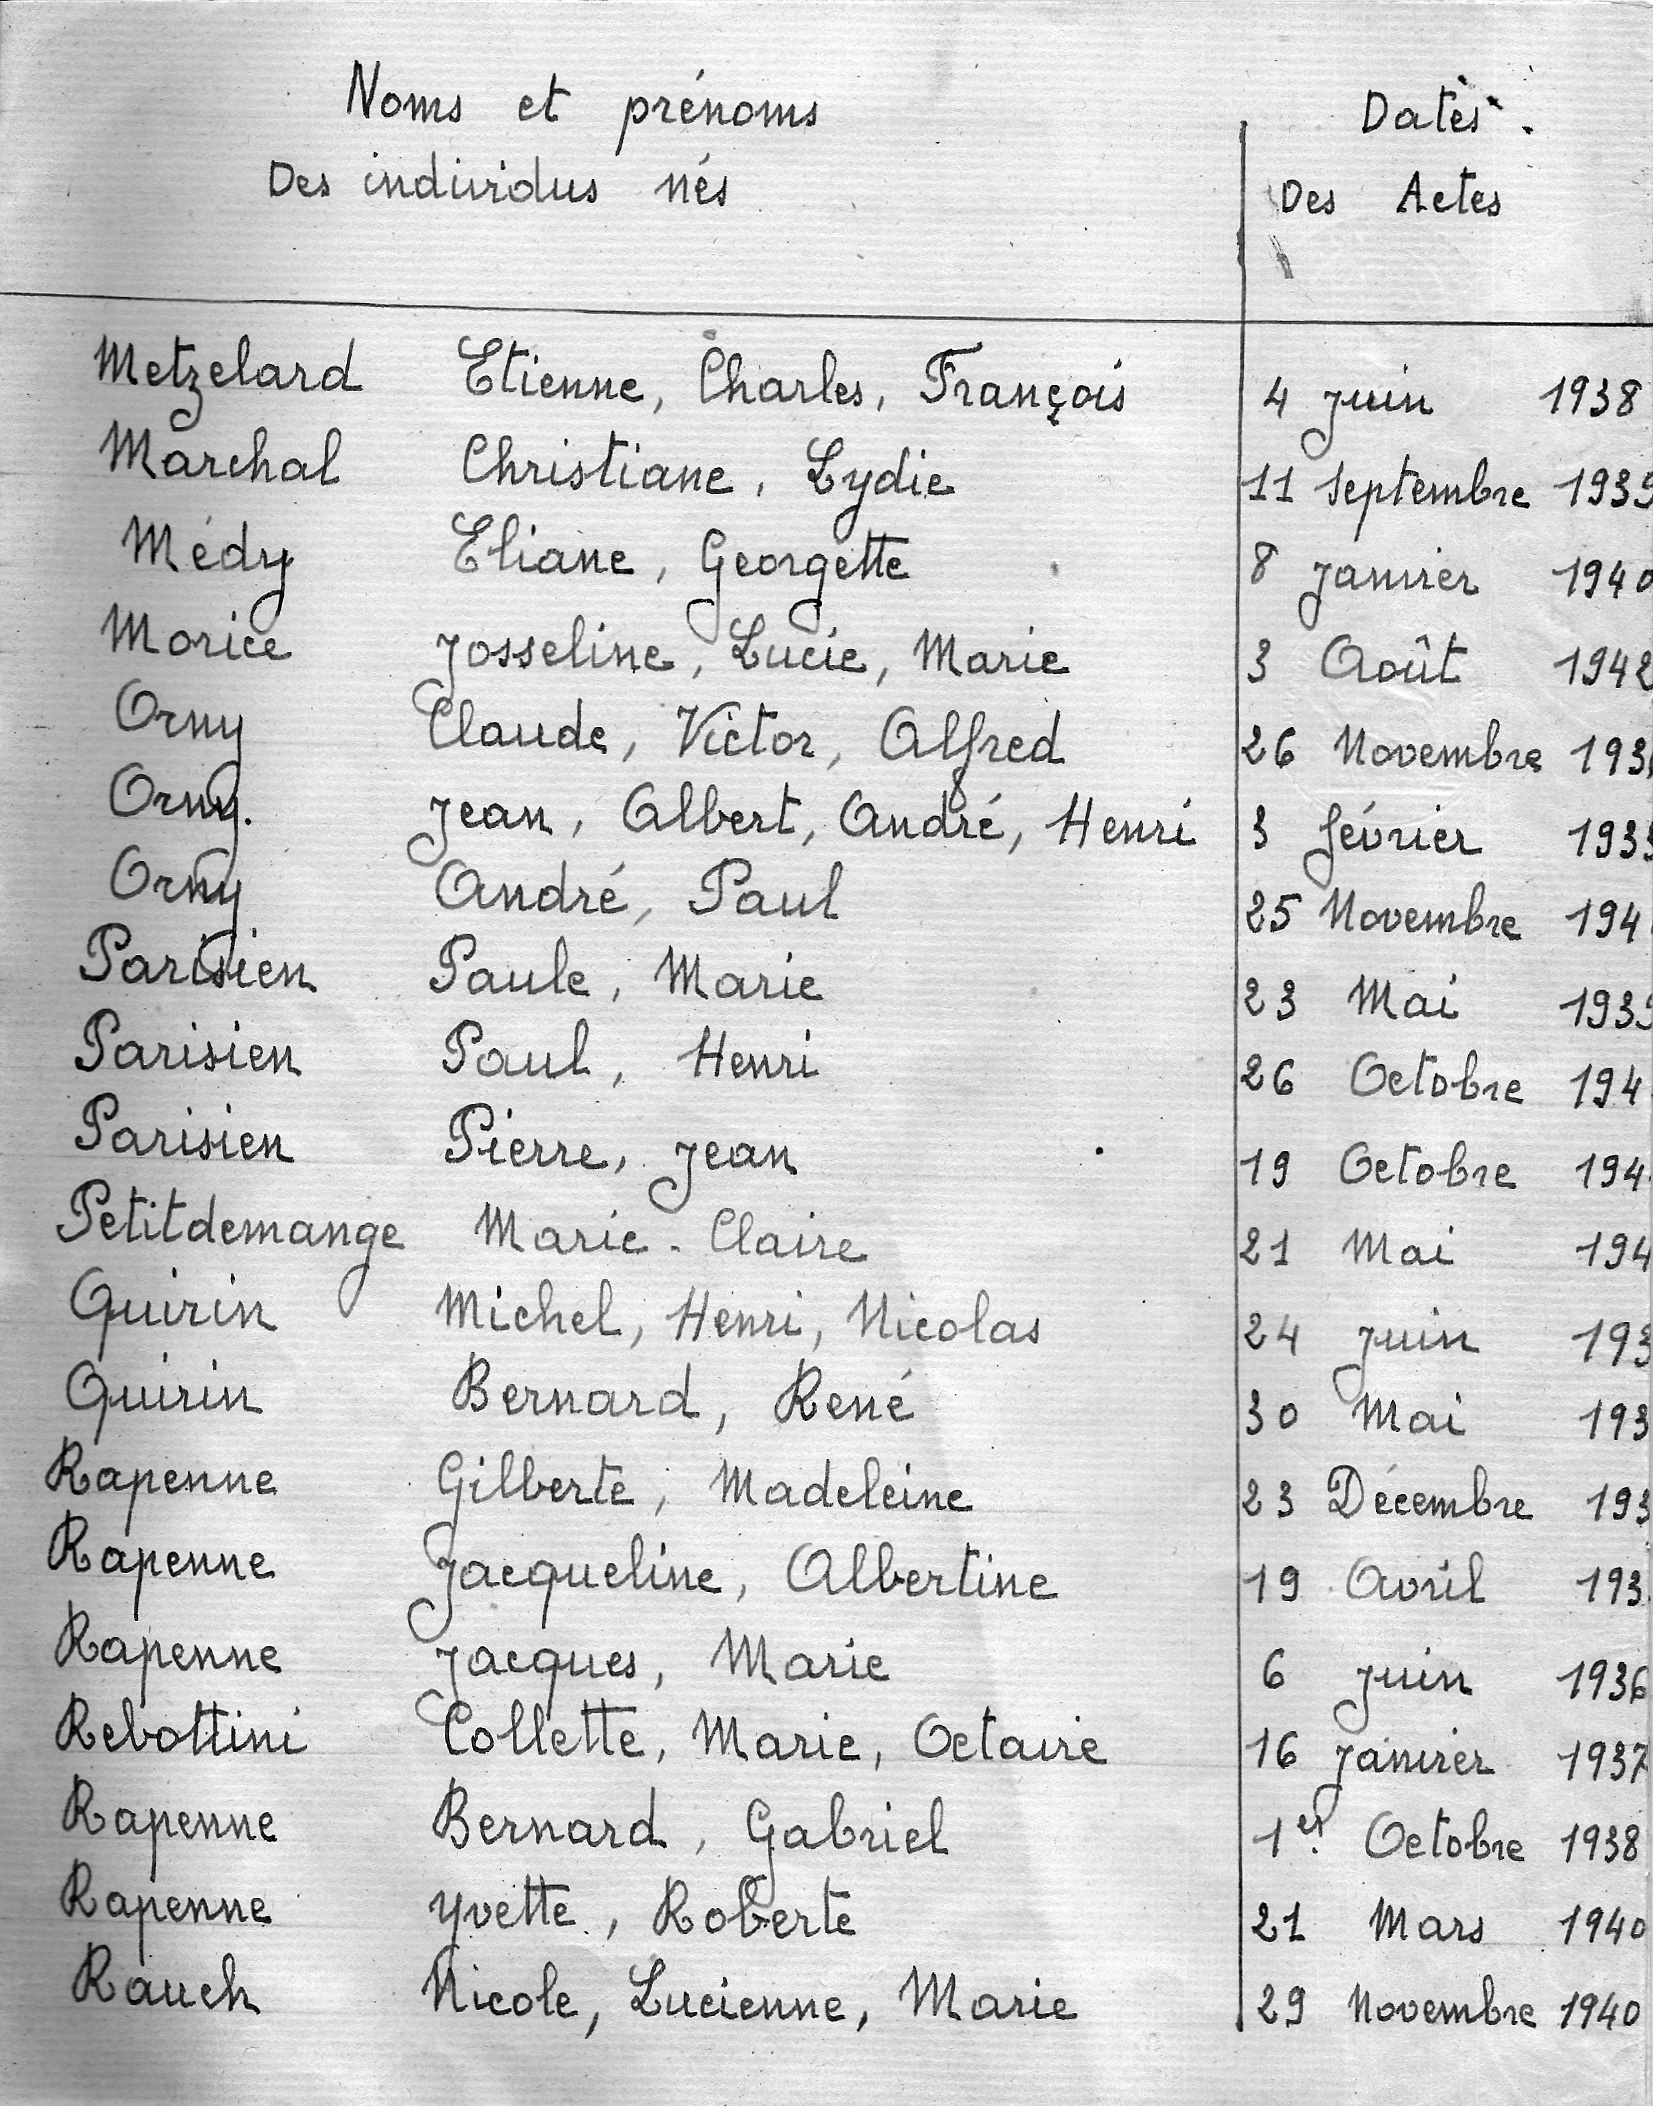 Noms et prénoms Dates.
Des individus nés Des Actes
Metzelard Etienne, Charles, François 4 juin 1938
Marchal Christiane, Lydie 11 septembre 1939
Médy Eliane, Georgette 8 janvier 1940
Morice Josseline, Lucie, Marie 3 Août 1942
Orny Claude, Victor, Alfred 26 Novembre 193
Orny. Jean, Albert, André, Henri 3 février 193
Orny André, Paul 25 Novembre 194
Parisien Paule, Marie 23 Mai 1939
Parisien Paul, Henri 26 Octobre 194
Parisien Pierre, Jean 19 Octobre 194
Petitdemange Marie-Claire 21 Mai 194
Quirin Michel, Henri, Nicolas 24 juin 193
Quirin Bernard, René 30 Mai 193
Rapenne Gilberte, Madeleine 23 Décembre 193
Rapenne Jacqueline, Albertine 19 Avril 193
Rapenne Jacques, Marie 6 juin 1936
Rebottini Collette, Marie, Octavie 16 janvier 1937
Rapenne Bernard, Gabriel 1er Octobre 1938
Rapenne Yvette, Roberte 21 Mars 1940
Rauch Nicole, Lucienne, Marie 29 Novembre 1940